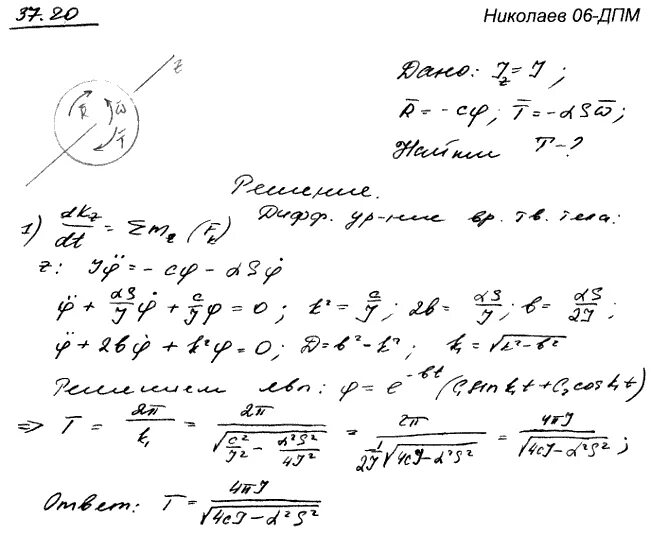 37.20
Николаев 06-ДПМ
z
R̄ ω̄ T̄
Дано: J_z = J;
R̄ = -cφ; T̄ = -αSω̄;
Найти T-?
Решение.
1) dK_z/dt = Σm_z(F̄_k) Дифф. ур-ние вр. тв. тела:
z: Jφ̈ = -cφ - αSφ̇
φ̈ + αS/J φ̇ + c/J φ = 0; k² = c/J; 2b = αS/J; b = αS/2J;
φ̈ + 2bφ̇ + k²φ = 0; D = b² - k²; k₁ = √(k² - b²)
Решением явл: φ = e^(-bt) (C₁sin k₁t + C₂cos k₁t)
=> T = 2π/k₁ = 2π/√(c²/J² - α²S²/4J²) = 2π/(1/2J √(4cJ - α²S²)) = 4πJ/√(4cJ - α²S²);
Ответ: T = 4πJ/√(4cJ - α²S²)